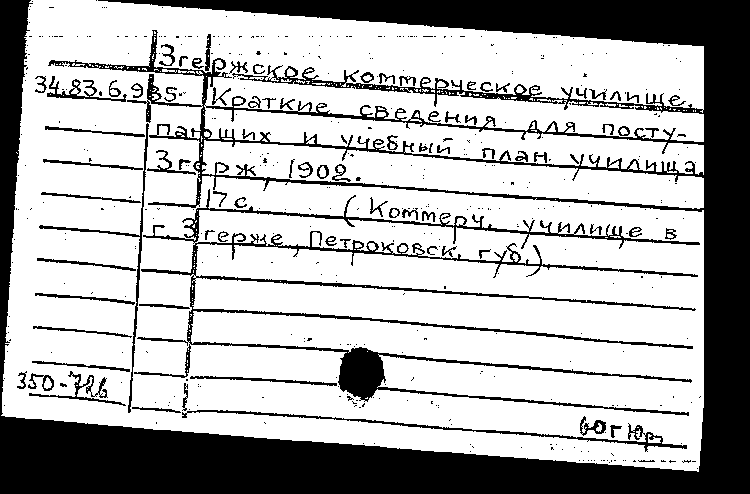 Згержское коммерческое училище.
34.83.6.985 Краткие сведения для посту-
пающих и учебный план училища.
Згерж, 1902.
17 с. (Коммерч. училище в
г. Згерже, Петроковск. губ.).
350-72в